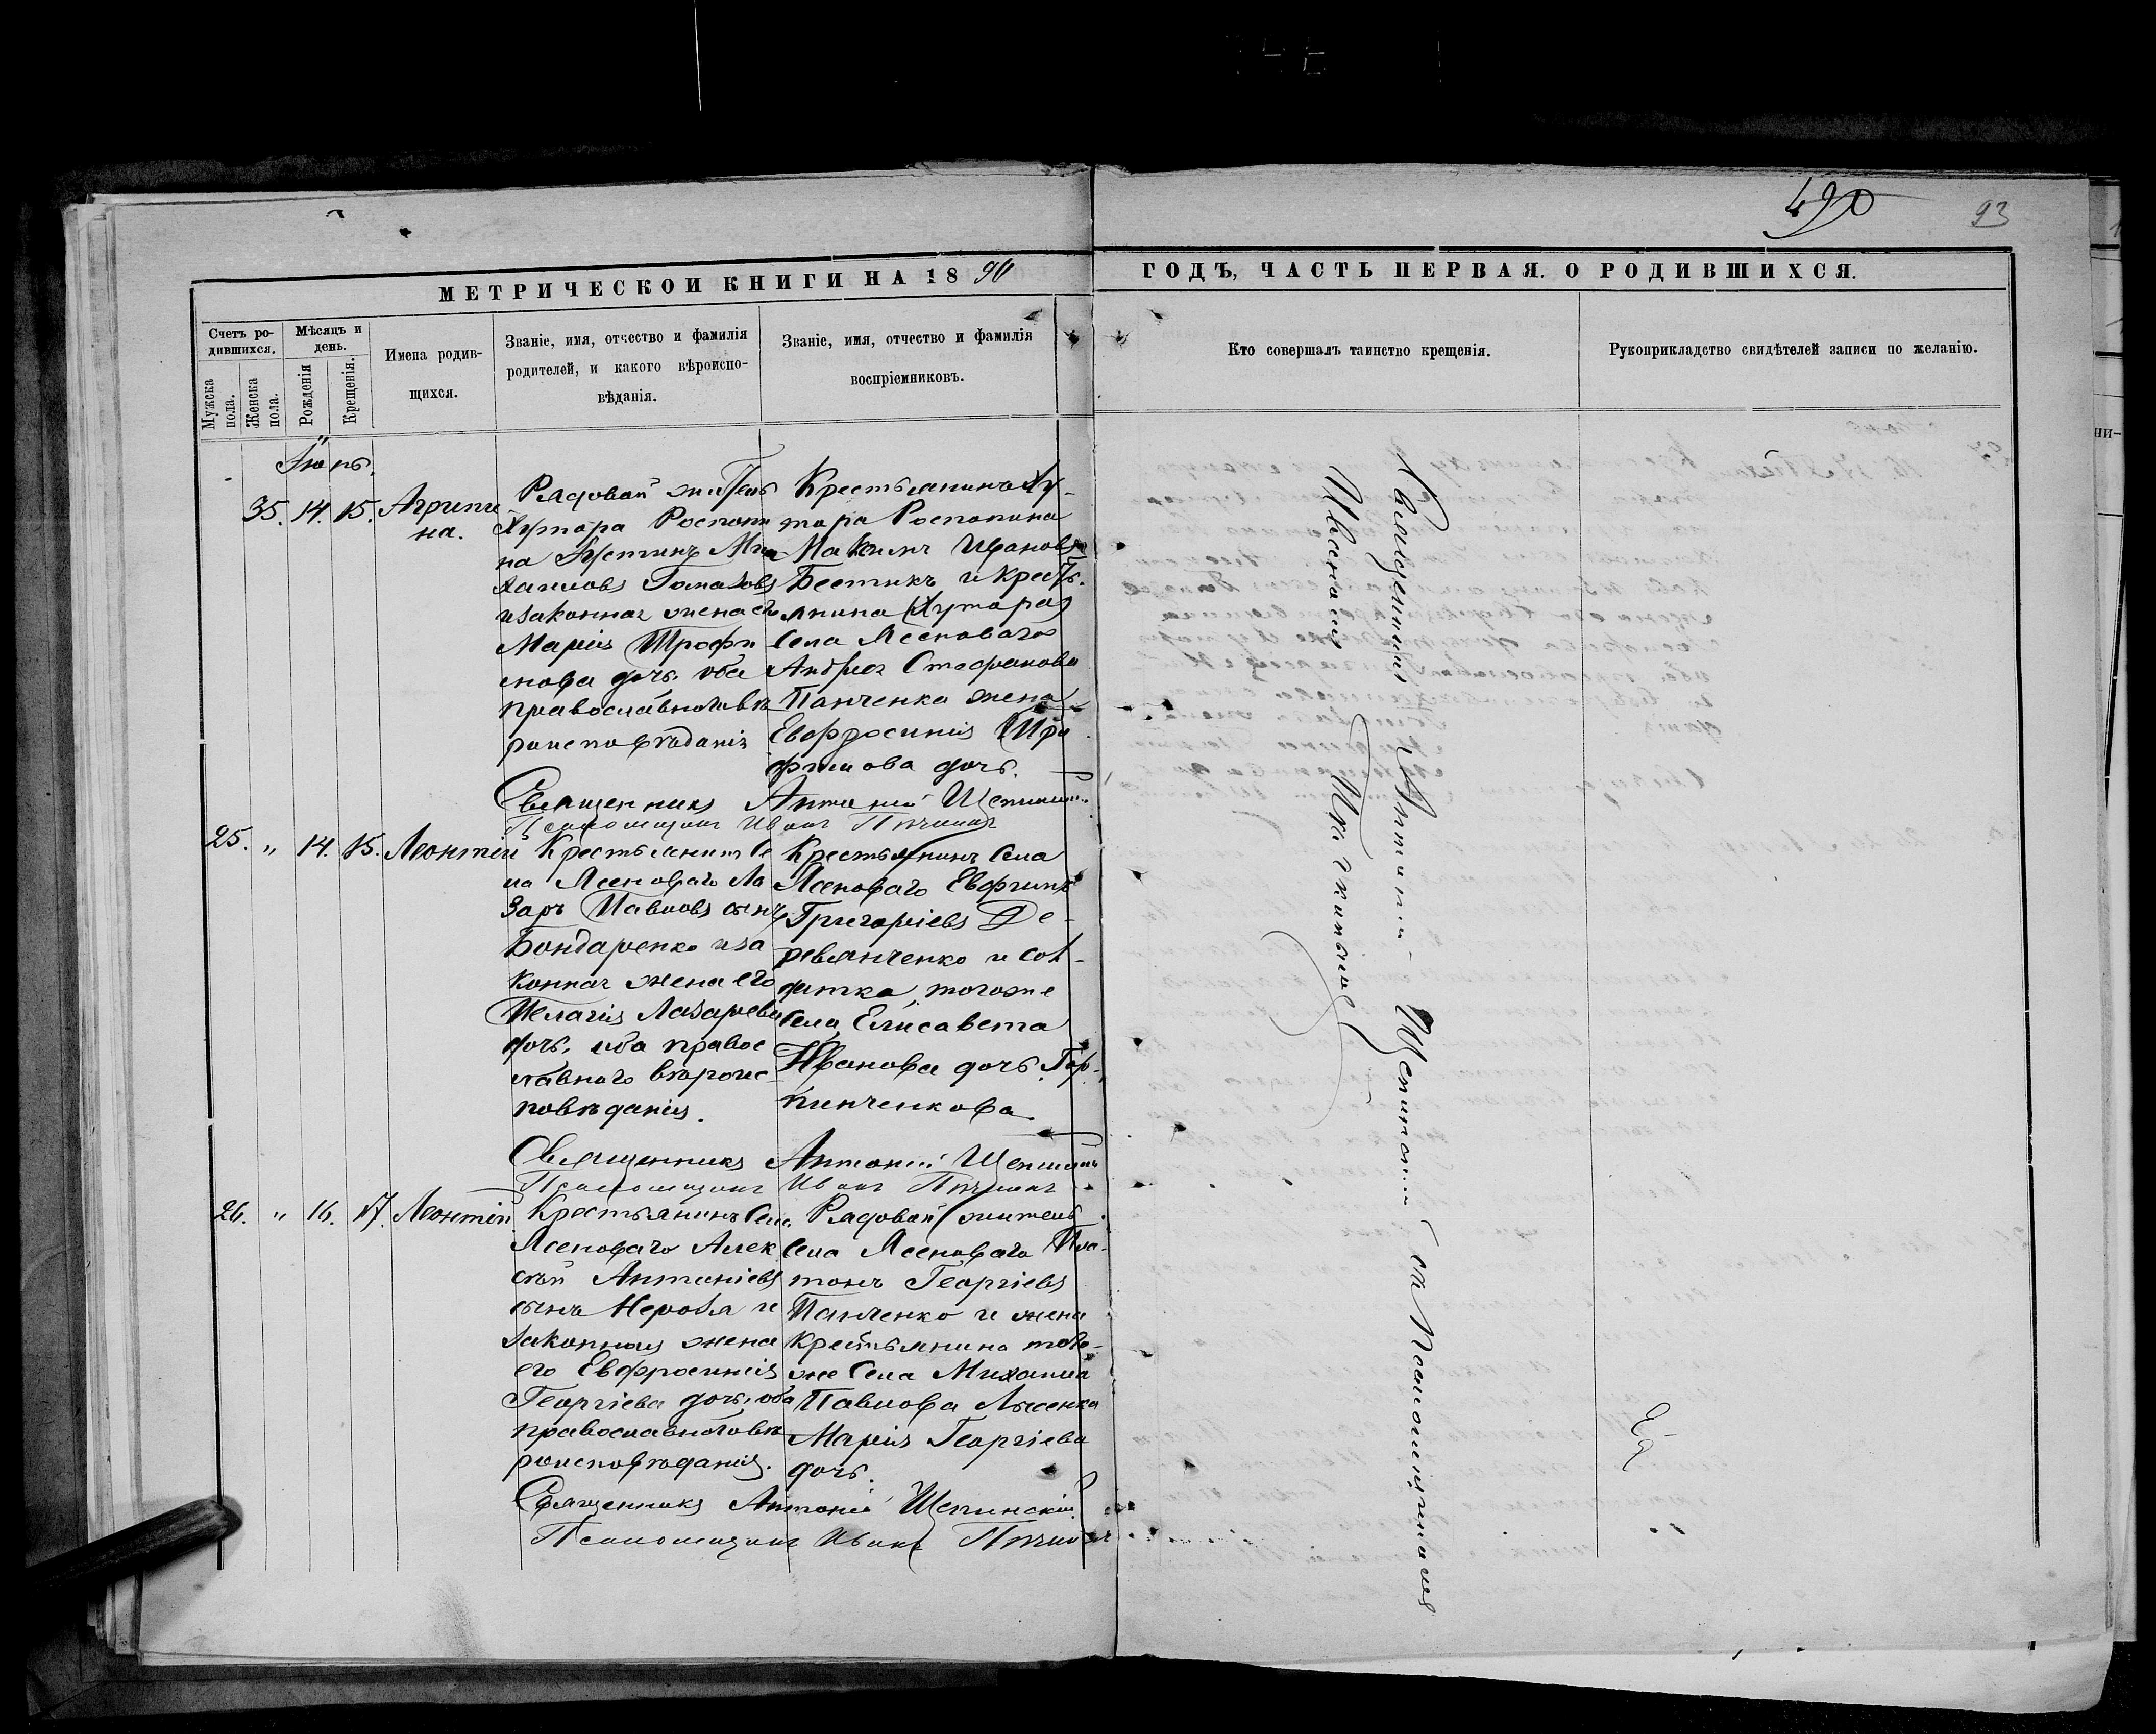 490
93
МЕТРИЧЕСКОЙ КНИГИ НА 1890
ГОДЪ, ЧАСТЬ ПЕРВАЯ. О РОДИВШИХСЯ.
Счетъ ро-
дившихся.
Мѣсяцъ и
день.
Мужска
пола.
Женска
пола.
Рожденія
Крещенія.
Имена родив-
щихся.
Званіе, имя, отчество и фамилія
родителей, и какого вѣроиспо-
вѣданія.
Званіе, имя, отчество и фамилія
воспріемниковъ.
Кто совершалъ таинство крещенія.
Рукоприкладство свидѣтелей записи по желанію.
Іюнь.
35. 14. 15. Агрипи
на.
Рядовой житель
Хутора Роспопи
на Іустинъ Ми
хаиловъ
и законная жена его
Марія Трофи
мова дочь. оба
православнаго вѣ
роисповѣданія
Крестьянинъ Ху-
тора Роспопина
Максимъ Ивановъ
Бестикъ и кресть.
янина (Хутора)
Села Ясеноваго
Андрея Стефанова
Панченка жена
Евфросинія
фимова дочь.
Священникъ Антоній
Псаломщикъ Иванъ
25. " 14. 15. Леонтій
Крестьянинъ Се
ла Ясеноваго Ла
зарь Павловъ сынъ
Бондаренко и за
конная жена его
Пелагія Лазарева
дочь. оба правос
лавного вѣроис
повѣданія.
Крестьянинъ Села
Ясеноваго Евфимъ
Григоріевъ Де-
ревянченко и сол-
датка, тогоже
Села, Елисавета
Иванова дочь.
пинченкова.
Священникъ Антоній
Псаломщикъ Иванъ
26. " 16. 17. Леонтій
Крестьянинъ Села
Ясеноваго Алек
сѣй Антоніевъ
сынъ и
законная жена
его Евфросинія
Георгіева дочь, оба
православного вѣ
роисповѣданія.
Рядовой житель
Села Ясеноваго Пла-
тонъ Георгіевъ
Панченко и жена
крестьянина того-
же Села Михаила
Павлова Лысенка
Марія Георгіева
дочь.
Священникъ Антоній Щепинскій
Псаломщикъ Иванъ
Священникъ Антоній съ Псаломщикомъ
Иваномъ